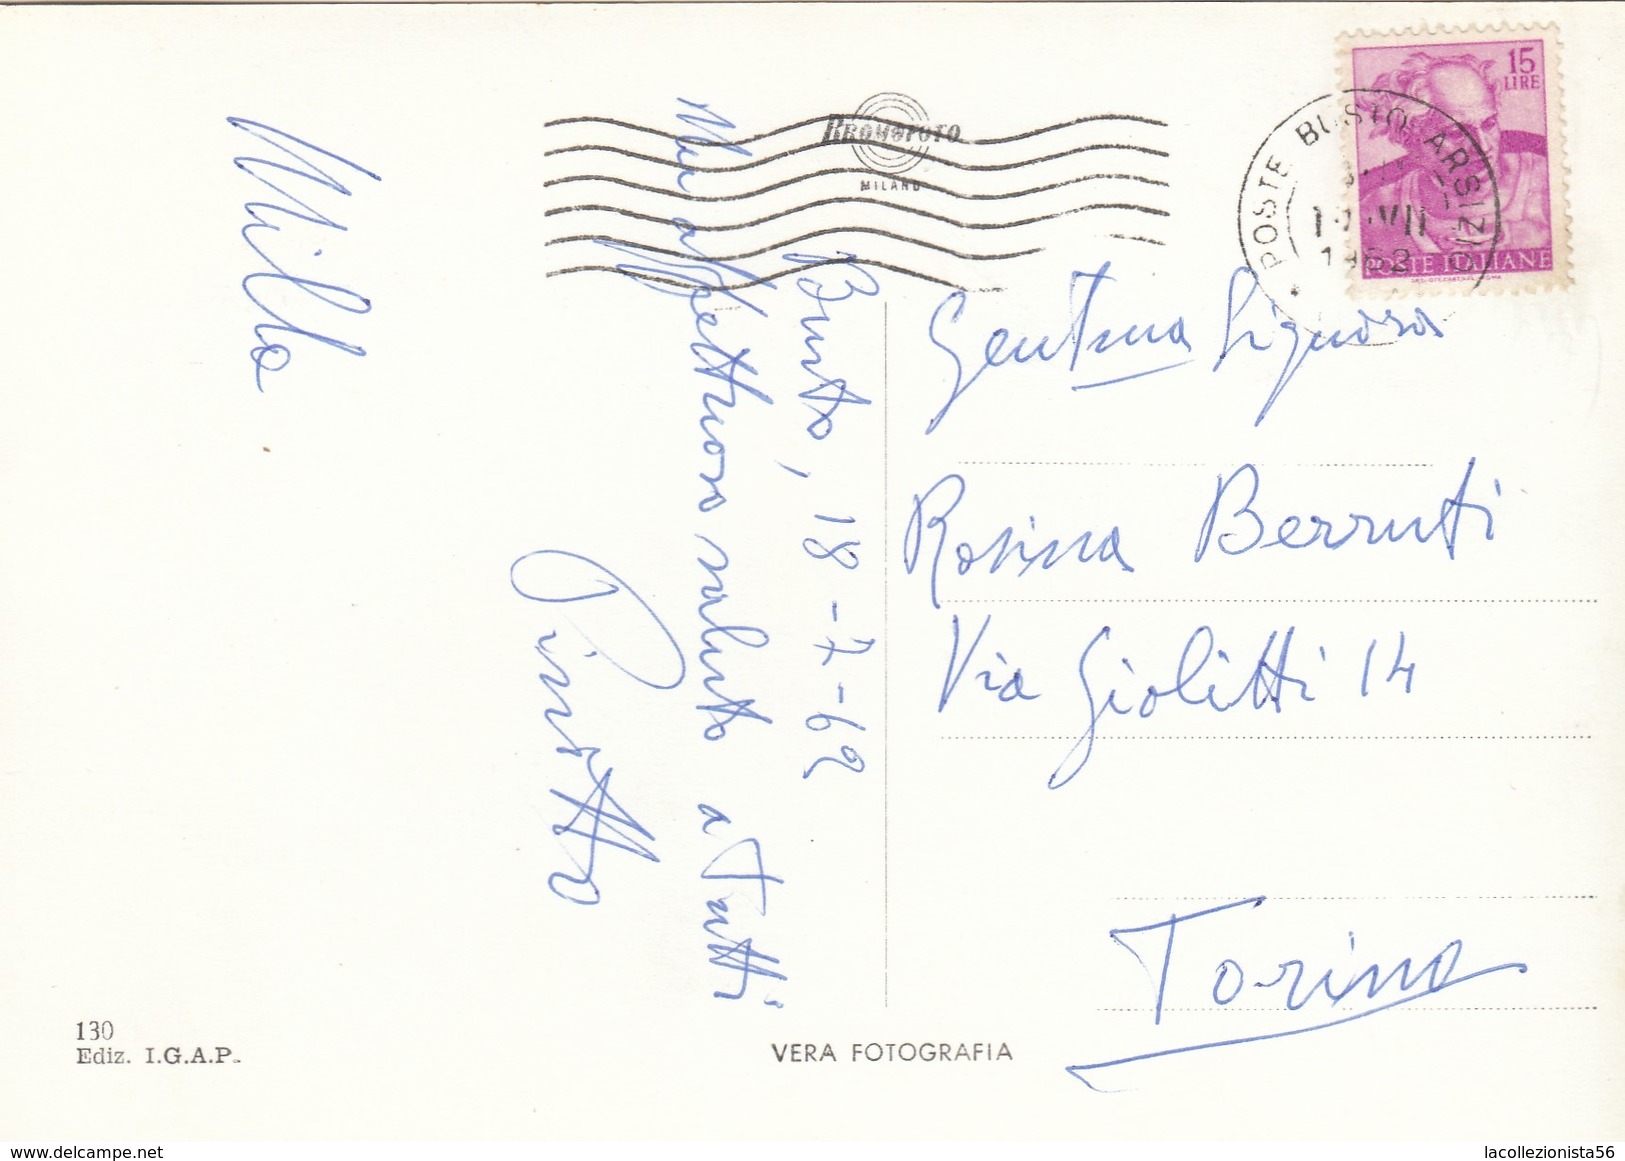 BROMOFOTO
MILANO
15
LIRE
POSTE ITALIANE
POSTE BUSTO ARSIZIO
VII
1962
Busto, 18-7-62
Un affettuoso saluto a tutti
Pinotto
Milla
Gent.ma Signora
Rosina Berruti
Via Giolitti 14
Torino
130
Ediz. I.G.A.P.
VERA FOTOGRAFIA
delcampe.net
lacollezionista56